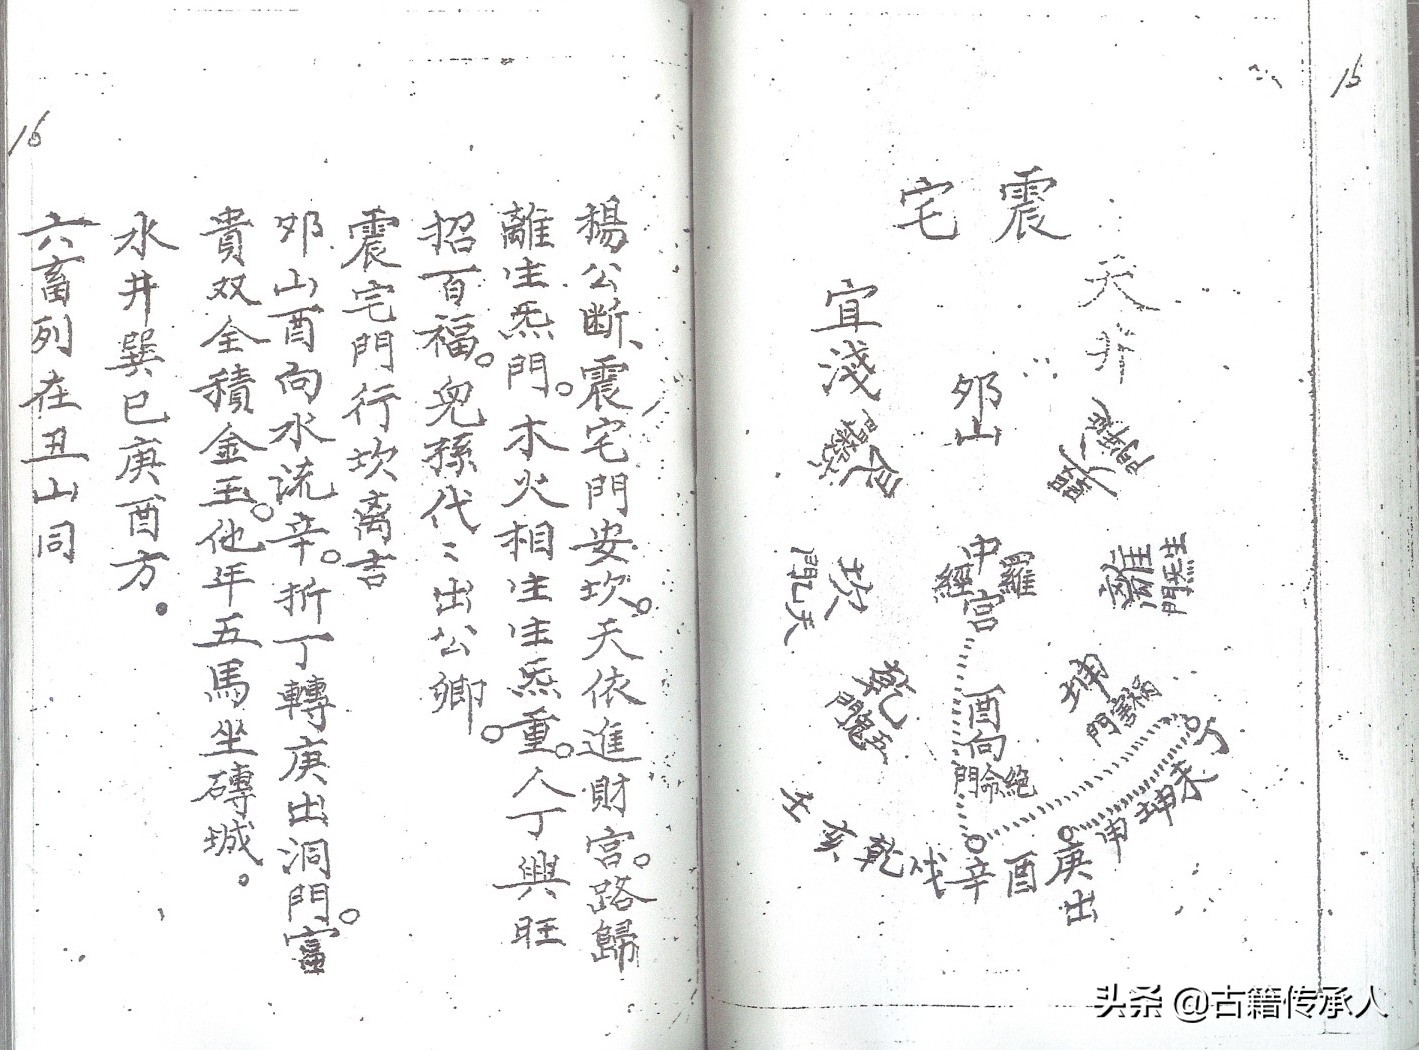 15
震宅
天井
宜淺
夘山
巽
延年門
艮
六煞門
中宮
羅經
離
生炁門
坎
天乙門
坤
禍害門
乾
五鬼門
酉向
絕命門
丁未坤申庚酉辛戌乾亥壬
出
16
楊公断、震宅門安坎。天依進財宮。路歸
離生炁門。木火相生生炁重。人丁興旺
招百福。兒孫代〻出公卿。
震宅門行坎离吉
夘山酉向水流辛。折丁轉庚出洞門。富
貴双全積金玉。他年五馬坐磚城。
水井巽巳庚酉方。
六畜列在丑山同
头条 @古籍传承人